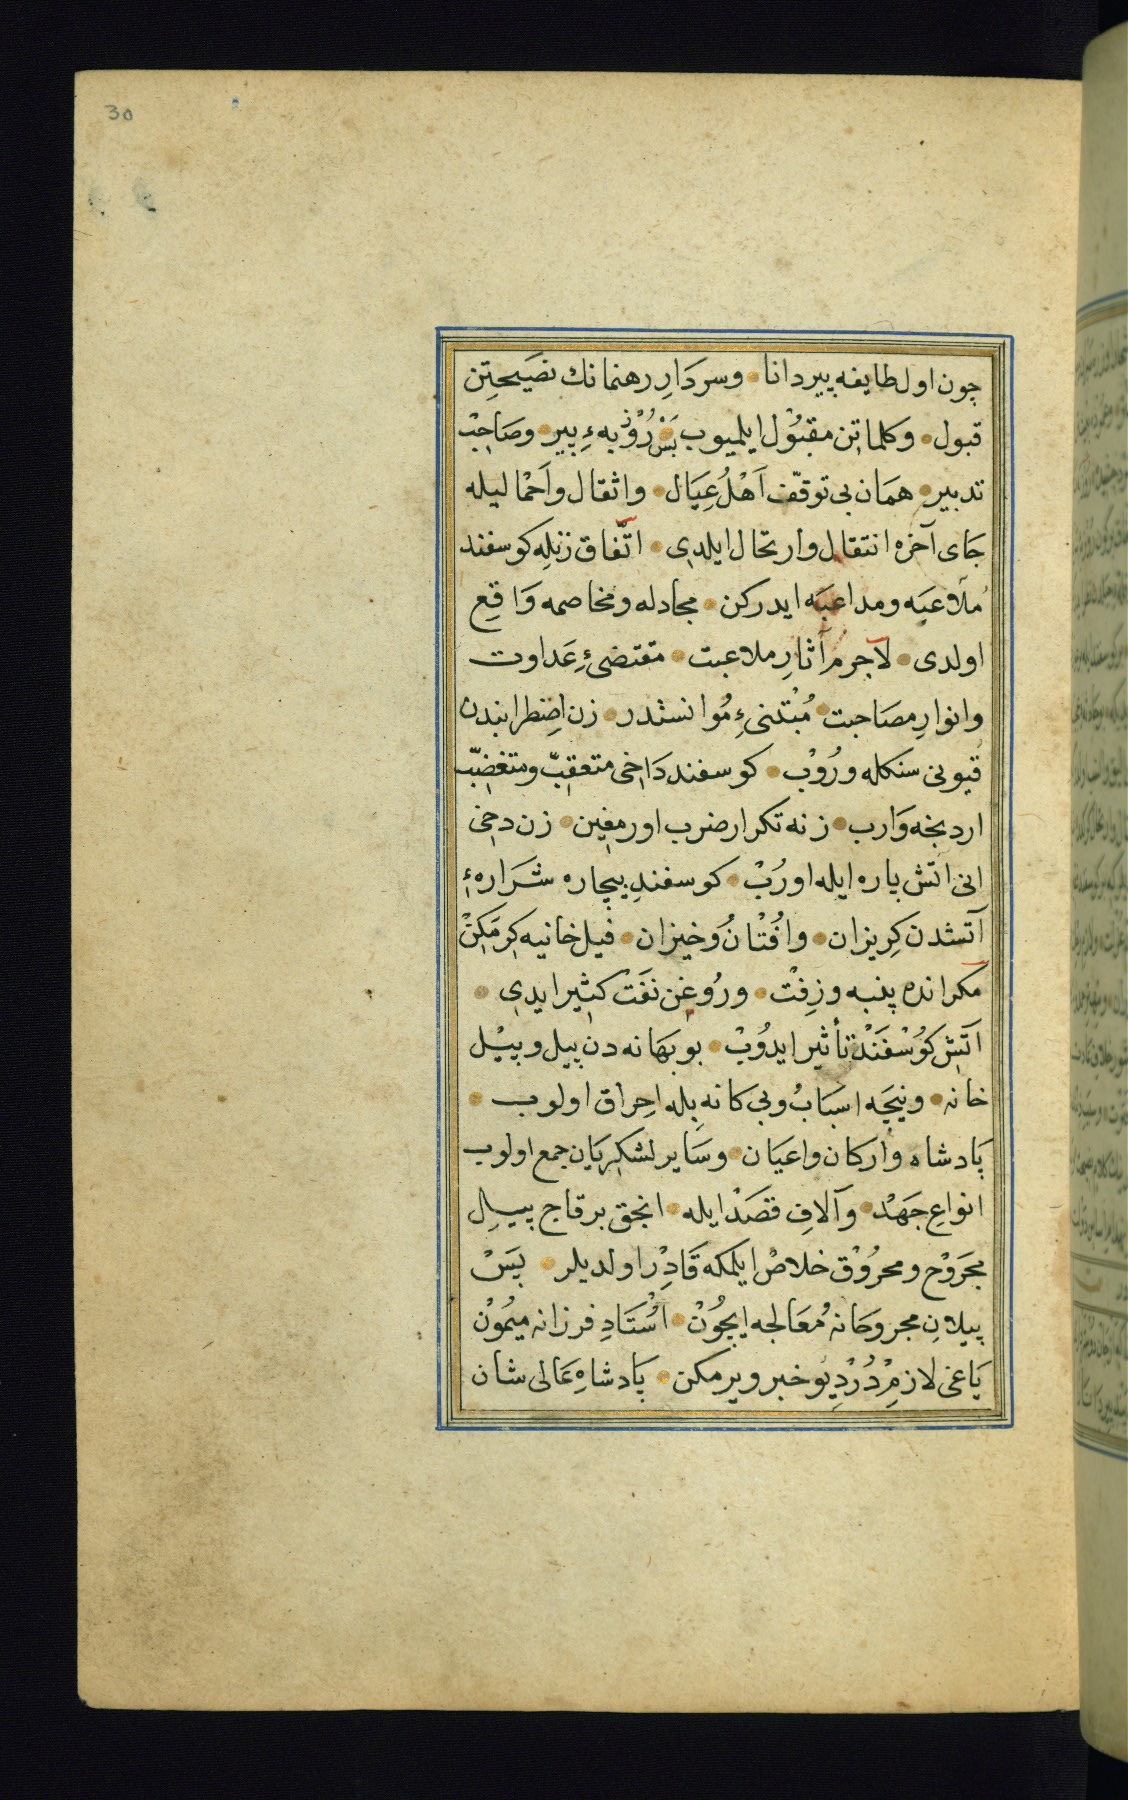 30
چون اول طايفه پير دانا وسردارِ رهنمانك نصيحتِن
قبول وكلماتِن مقبُوْل ايلميوب بَسْ رُوْزبه ءِ پير وصَاحِبْ
تدبير همَان بى توقّف اَهْلُ عِيَال واثقال واَحْماليله
جَاى آخره انتقال وارتحال ايلدى اتّفاق زنيله كوسفند
مُلاَعَبَه ومداعبَه ايدركن مجادله ومخاصمه وَاقِع
اولدى لاَجرم آثارِ ملاعبت مقتضىءِ عَداوت
وانوارِ مصَاحبت مُبْتنىءِ مُوانستدر زن اِضطرابندن
قيونى سنكله ورُوْب كوسفند دَاخى متعقِبّ ومتغضِبّ
اردبخه وَارب زنه تكرار ضرب اورمغين زن دخى
انى اتش پاره ايله اورُبْ كوسفندِ بيچاره شَرَاره ءِ
آتشدن كِريزان واُفْتَانُ وخيزان فيلخانيه كرمَكِنْ
مكر انده پنبه وزِفْت ورُوغن نفَتْ كثير ايدى
آتَشِ كوُسْفَنْدْ تأثير ايدُوْبْ بو بهَانه دن پيل وپيْل
خانه ونيچَه اسبَابُ وبى كانه بِله احِراق اولوب
پَادشاه واركان واعيَان وسَاير لشكريَان جمع اولوب
انواعِ جَهْد وآلافِ قصَدْ ايله انجق برقاج پيلِ
مجَروْح ومحرُوْق خلاصْ ايلمكه قَادِرْ اولديلر بَسْ
پيلانِ مجروحَانه مُعَالجه ايچُوْن اُسْتَادِ فرزانه ميمُوْن
يَاغى لازمْدُرْ ديو خبر ويرمكن پَادشاهِ عَالى شان